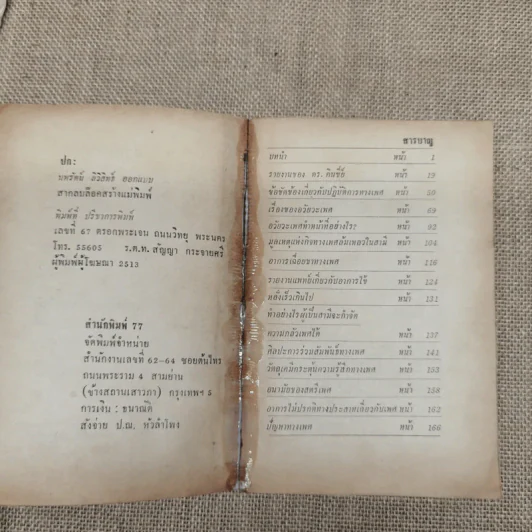 ปก:
นพรัตน์ ลิวิสิทธิ์ ออกแบบ
สากลบล๊อคสร้างแม่พิมพ์
พิมพ์ที่ ปรีชาการพิมพ์
เลขที่ 67 ตรอกพระเจน ถนนวิทยุ พระนคร
โทร. 55605 ร.ต.ท. สัญญา กระจายศรี
ผู้พิมพ์ผู้โฆษณา 2513
สำนักพิมพ์ 77
จัดพิมพ์จำหน่าย
สำนักงานเลขที่ 62-64 ซอยต้นไทร
ถนนพระราม 4 สามย่าน
(ข้างสถานเสาวภา) กรุงเทพฯ 5
การเงิน : ธนาณัติ
สั่งจ่าย ป.ณ. หัวลำโพง
สารบาญ
บทนำ หน้า 1
รายงานของ ดร. คินซี่ย์ หน้า 19
ข้อขัดข้องเกี่ยวกับปฏิบัติการทางเพศ หน้า 50
เรื่องของอวัยวะเพศ หน้า 69
อวัยวะเพศทำหน้าที่อย่างไร? หน้า 93
มูลเหตุแห่งกิจทางเพศล้มเหลวในสามี หน้า 104
อาการเฉื่อยชาทางเพศ หน้า 116
รายงานแพทย์เกี่ยวกับอาการไร้ หน้า 124
หลั่งเร็วเกินไป หน้า 131
ทำอย่างไรผู้เป็นสามีจะกำจัด
ความกลัวเพศได้ หน้า 137
ศิลปะการร่วมสัมพันธ์ทางเพศ หน้า 141
วัตถุเคมีกระตุ้นความรู้สึกทางเพศ หน้า 153
อนามัยของสตรีเพศ หน้า 158
อาการไม่ปรกติทางประสาทเกี่ยวกับเพศ หน้า 162
ปัญหาทางเพศ หน้า 166